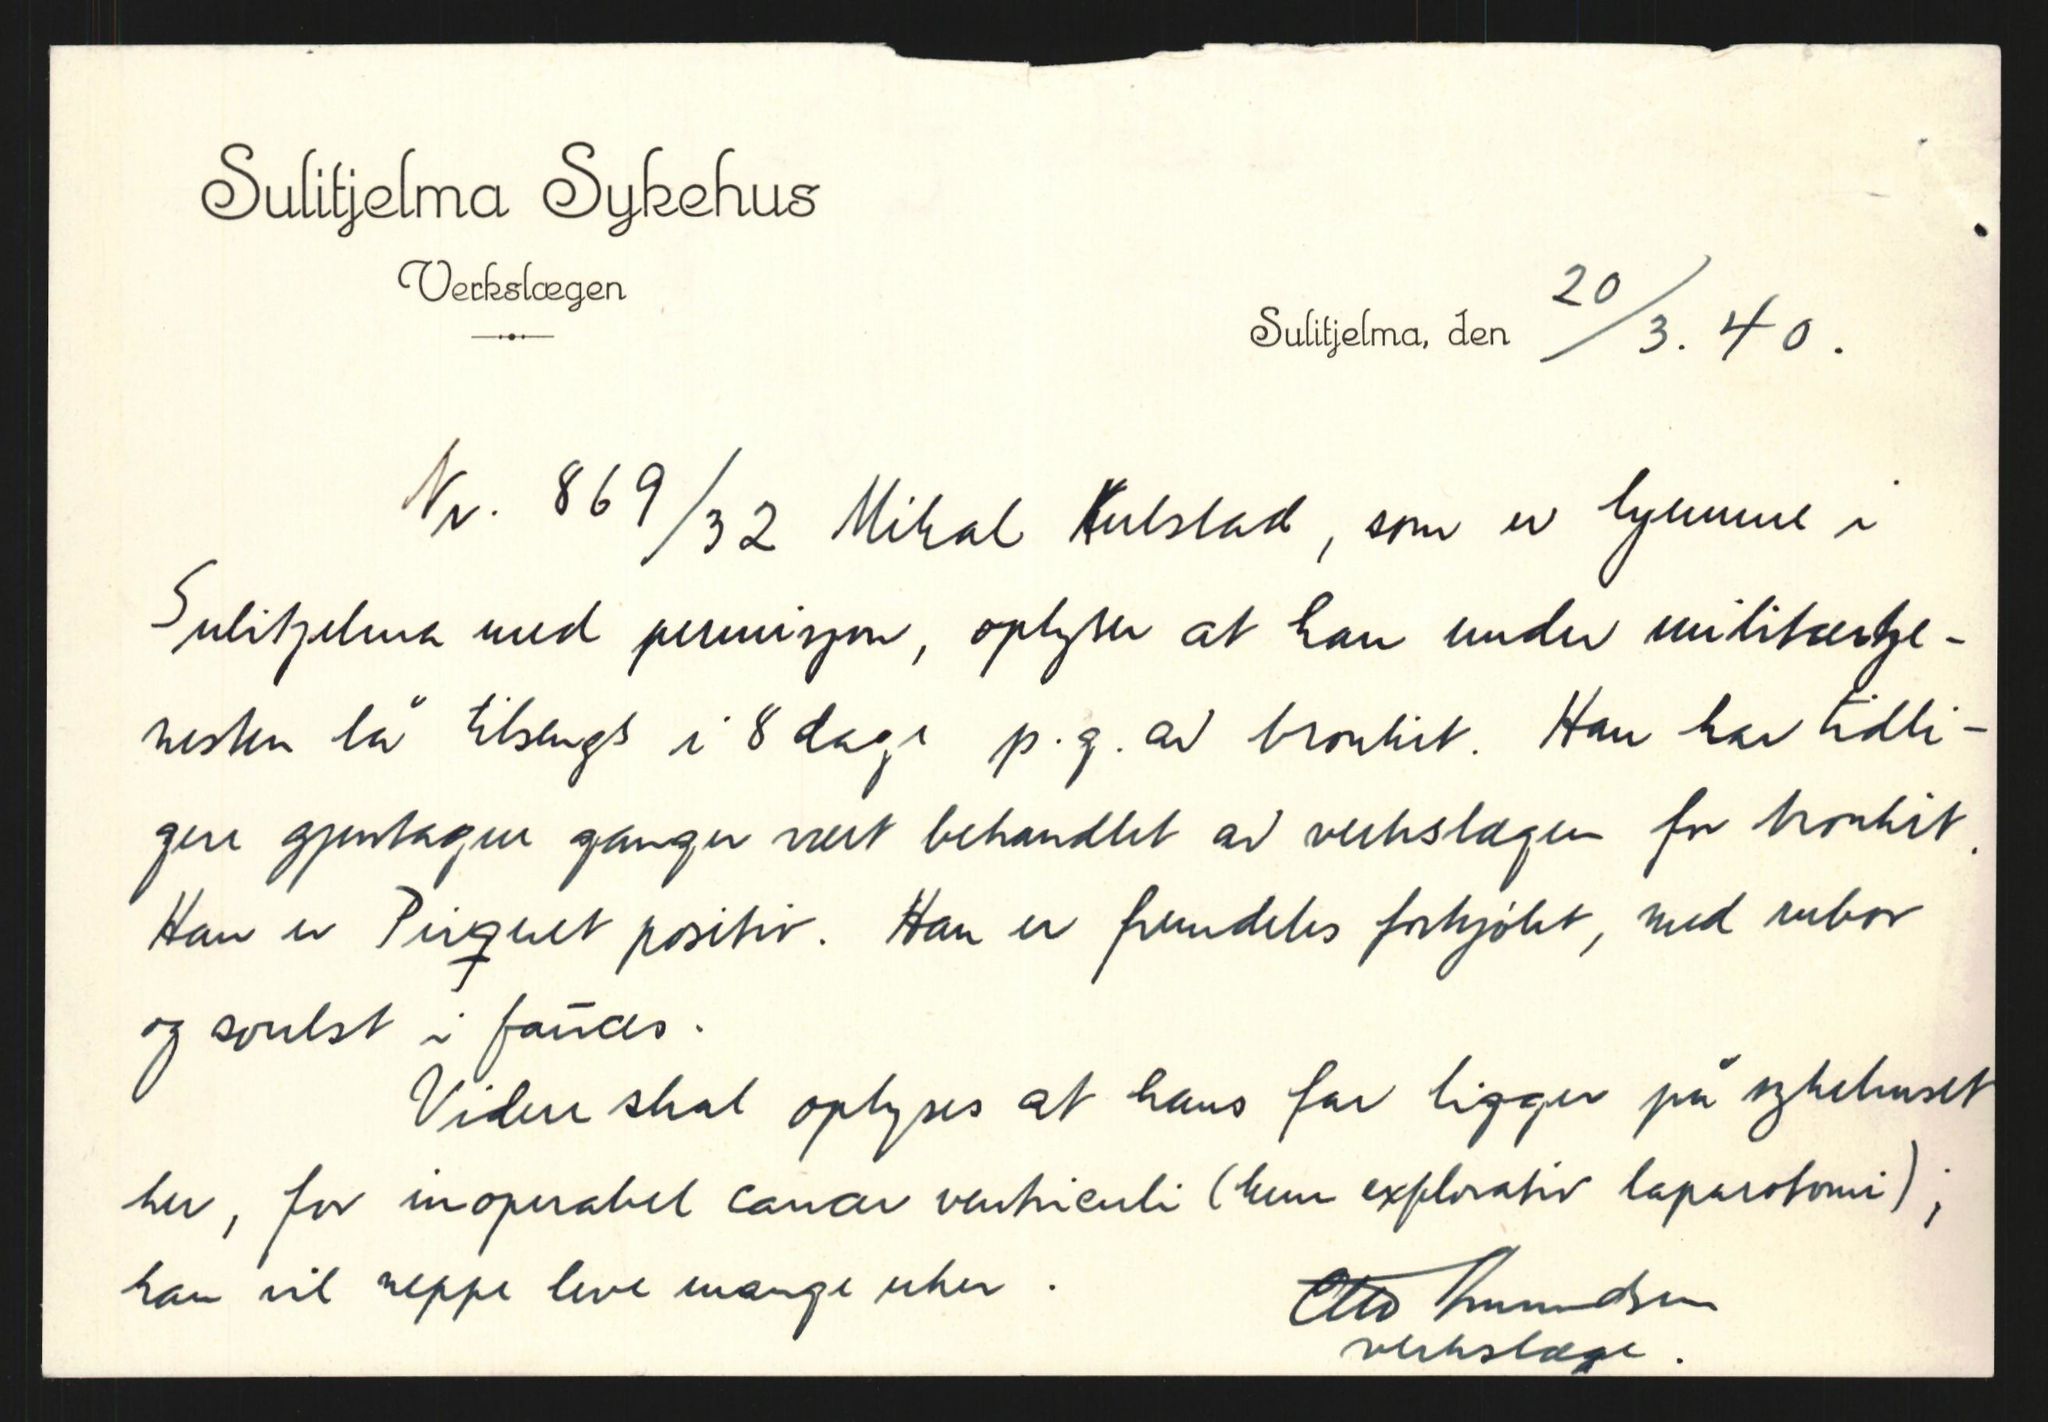 Sulitjelma Sykehus
Verkslægen
Sulitjelma, den 20/3. 40.
Nr. 869/32 Mikal Kulstad, som er hjemme i
Sulitjelma med permisjon, oplyser at han under militærtje-
nesten lå tilsengs i 8 dage p.g. av bronkit. Han har tidli-
gere gjentagne ganger vært behandlet av verkslægen for bronkit.
Han er Pirquet positiv. Han er fremdeles forkjølet, med rubor
og svulst i fauces.
Videre skal oplyses at hans far ligger på sykehuset
her, for inoperabel cancer ventriculi (kun explorativ laparotomi);
han vil neppe leve mange uker.
Otto
verkslæge.